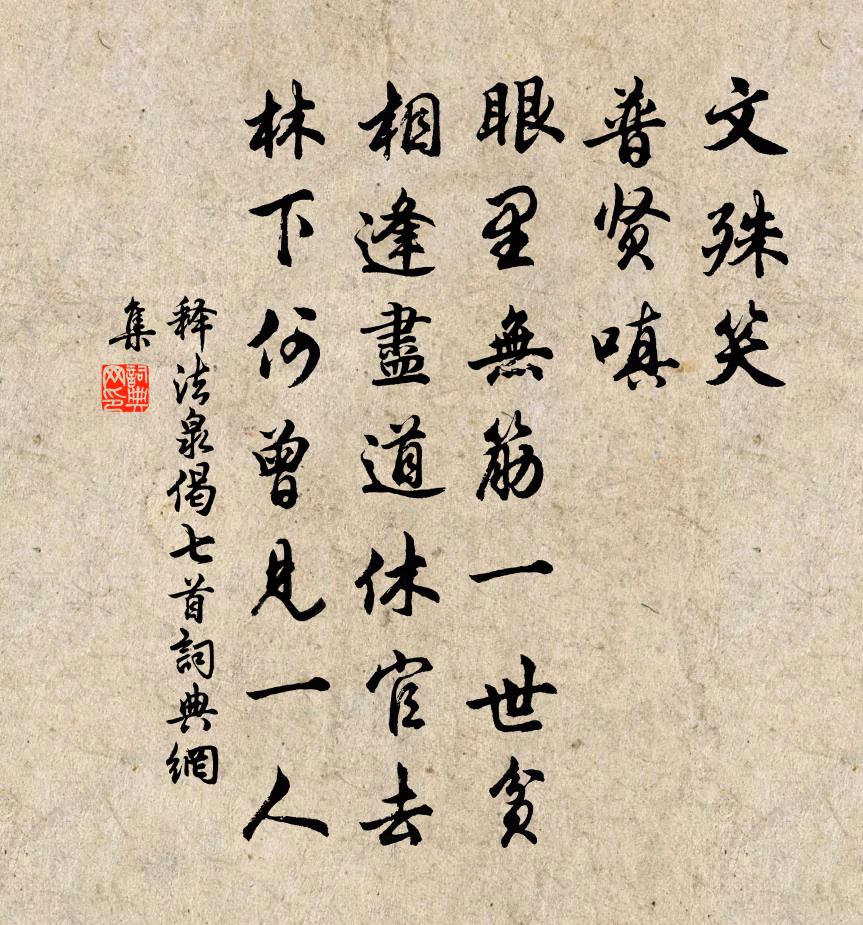 文殊笑
普贤嗔
眼里無筋一世貧
相逢盡道休官去
林下何曾見一人
释法泉偈七首詞典網
集
詞典
网印